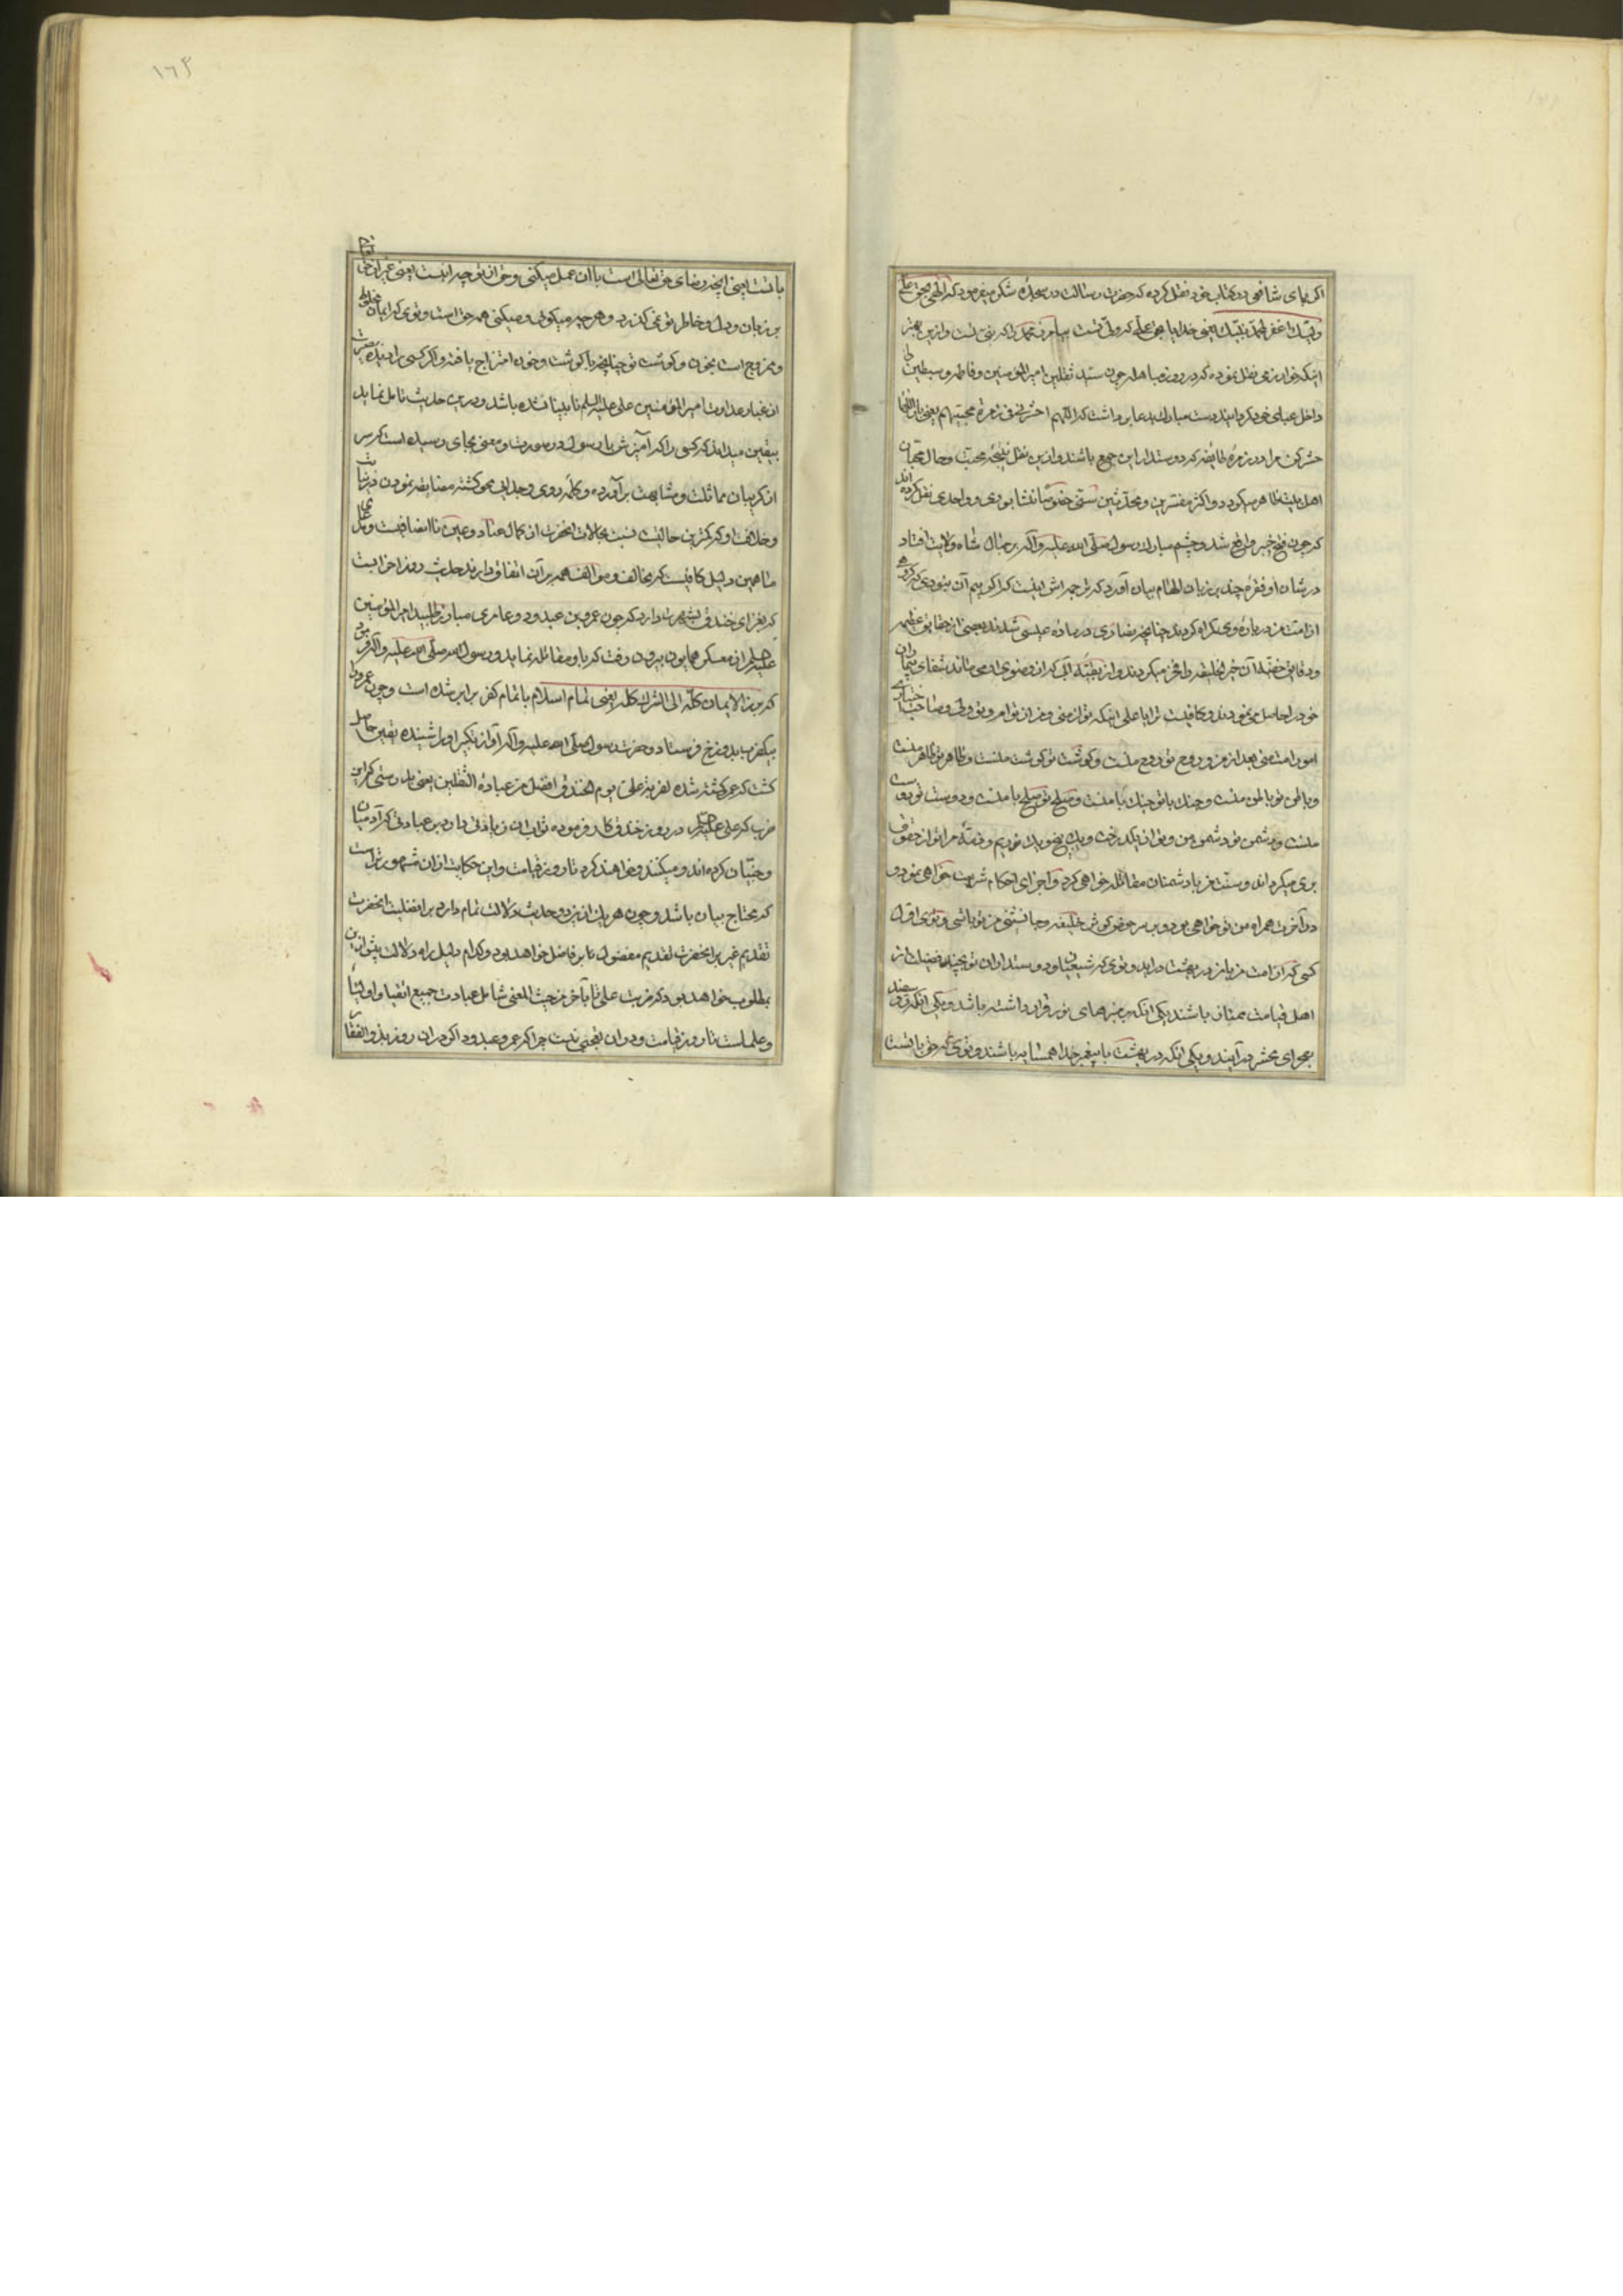 اکیای شافعی در کتاب خود نقل کرده که حضرت رسالت در سجدهٔ شکر میفرمود که الهی بحق علی
ولیک اغفر لمحمد نبیک یعنی خدایا بحق علی که ولی تست بیامرز محمد را که نبی تست و ازین بهتر
اینکه خوارزمی نقل نموده که در روز مباهله چون سید ثقلین امیر المؤمنین و فاطمه و سبطین را
داخل عبای خود کردانید دست مبارک بدعا برداشت که اللهم احشرنی فی زمرة محبیهم یعنی بار الها
حشر کن مرا در زمرهٔ طایفه که دوستدار این جمع باشند و ازین نقل نتیجه محبت و حال محبان
اهل بیت ظاهر میکردد و اکثر مفسرین و محدثین سنی خصوصا نیشابوری و واحدی نقل کرده اند
که چون فتح خیبر واقع شد و چشم مبارک رسول صلی الله علیه وآله بر جمال شاه ولایت افتاد
در شان او فقره چند بر زبان الهام بیان آورد که ترجمه اش اینست که اگر بیم آن نبودی که کروهی
از امت من درباره وی گمراه کردند چنانچه نصاری درباره عیسی شدند بعضی از حقایق عظیمه
ودقایق خفیه آن خیر الخلیقه را میکردند و از بقیه آبی که از وضوی او می ماند شفای بیماران
خود را حاصل می نمودند و کافیست ترا یا علی اینکه تو از منی و من از تو ام و تو ولی و صاحب اختیار
امور امت منی بعد از من و روح تو روح منست و گوشت تو گوشت منست و ظاهر تو ظاهر منست
و باطن تو باطن منست و جنک با تو جنک با منست و صلح تو صلح با منست و دوست تو دوست
منست و دشمن تو دشمن من و تو از یک درخت و یک بیخ بودیم و ذمهٔ مرا تو از حقوق
بری میکردانی و سنت من با دشمنان مقاتله خواهی کرد و اجرای احکام شریعت خواهی نمود و
در آخرت همراه من تو خواهی بود و بر سر حوض کوثر خلیفه و جانشین من تو باشی و توی اول
کسی که از امت من با من در بهشت در اید و توی که شیعیان و دوستداران تو بچند فضیلت از
اهل قیامت ممتاز باشند یکی انکه بر منبرهای نور قرار داشته باشند و یکی انکه رو سفید
بصحرای محشر در آیند و یکی انکه در بهشت با پیغمبر خدا همسایه باشند و توی که حق با تست
با تست یعنی انچه رضای حق تعالی است با آن عمل میکنی و حق از تو جدا نیست یعنی غیر از حق
بر زبان و دل و خاطر تو نمی کذرد و هر چه میکوی و میکنی همه حق است و توی که ایمان مخلوط
و ممزوج است بخون و کوشت تو چنانچه با کوشت و خون امتزاج یافته و اکر کسی را دیده بصیرت
از غبار عداوت امیر المؤمنین علی علیه السلم نابینا نشده باشد و درین حدیث تامل نماید
بیقین میداند که کسی را که آمیزش با رسول در صورت و معنی بجای رسیده است که سر
از کریبان مماثلت و مشابهت برآورده و کلمه دوی و جدایی محو کشته مضایقه نمودن در
و خلافت او که کمترین حالیست نسبت بحالات انحضرت از کمال عناد و عین ناانصافیست و بر
ما همین دلیل کافیست که مخالف و موالف همه بر آن اتفاق دارند حدیث روز احزابست
که بغزای خندق شهرت دارد که چون عمرو بن عبدود عامری مبارز طلبید امیر المؤمنین
علیه السلم از معسکر همایون بیرون رفت که با او مقاتله نماید و رسول الله صلی الله علیه وآله فرمود
که برز الایمان کله الی الشرک کله یعنی تمام اسلام با تمام کفر برابر شده است و چون عمرو را
بیکضرب بدوزخ فرستاد و حضرت رسول صلی الله علیه وآله آواز تکبیر او را شنیده یقین حاصل
کشت که عمرو کشته شده لضربة علی یوم الخندق افضل من عبادة الثقلین یعنی بدرستی که این
ضرب که علی علیه السلم در روز خندق کار فرموده ثواب ان زیادتی دارد بر عبادتی که آدمیان
و جنیان کرده اند و میکنند و خواهند کرد تا روز قیامت و این حکایت از ان مشهورتر است
که محتاج بیان باشد و چون هر یک ازین دو حدیث دلالت تمام دارد بر افضلیت انحضرت
تقدیم غیر بر انحضرت تقدیم مفضول بر فاضل خواهد بود و کدام دلیل براه دلالت ازین
بمطلوب خواهد بود که ضربت علی تا بآخر من حیث المعنی شامل عبادت جمیع انقیا و اولیا
و علماست تا روز قیامت و در ان تعجبی نیست چرا که عمرو عبدود اکر در ان روز بذوالفقار